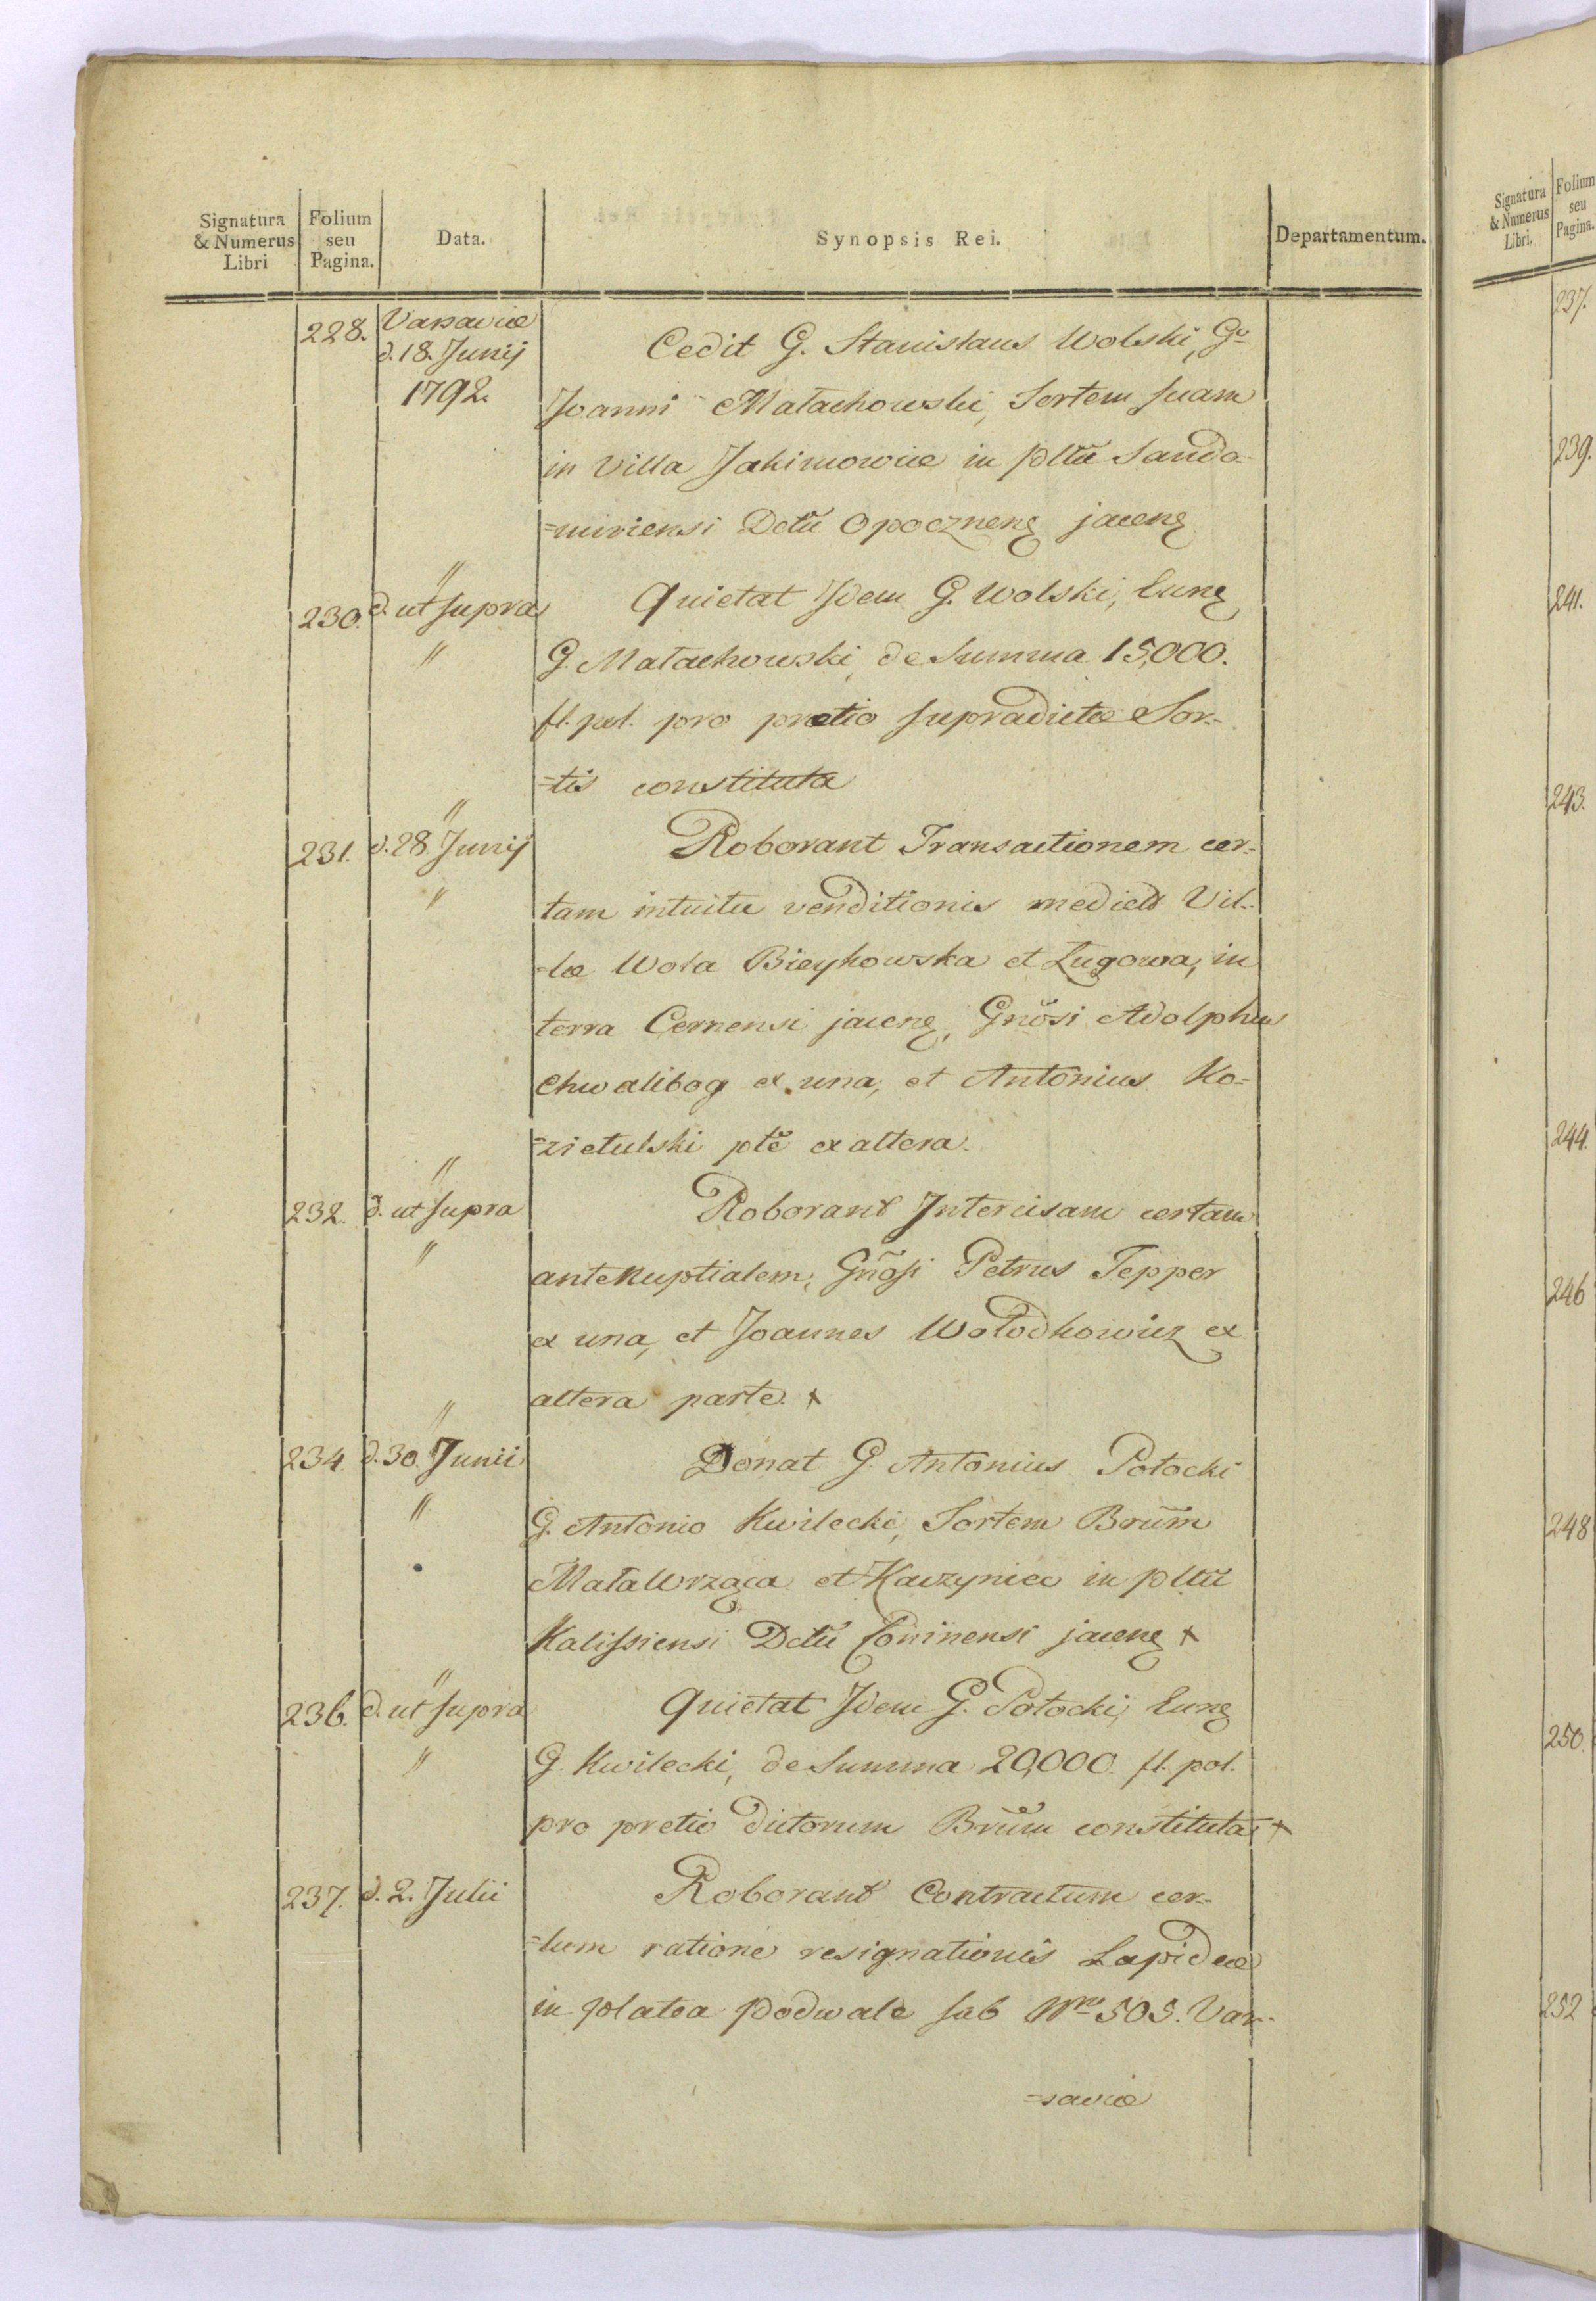 Signatura & Numerus Libri | Folium seu Pagina. | Data. | Synopsis Rei. | Departamentum.
228. | Varsaviæ d. 18. Junij 1792. | Cedit G. Stanislaus Wolski, Go
Joanni Małachowski, Sortem suam
in Villa Jakimowice in pltũ Sando-
=miriensi Dctũ Opocznenȝ jacenȝ
230. | " d. ut supra " | Quietat Idem G. Wolski, Eunȝ
G. Małachowski, de Summa 15,000.
fl. pol. pro pretio supradictæ Sor-
=tis constituta
231. | " d. 28. Junij " | Roborant Transactionem cer-
tam intuitu venditionis mediet Vil-
=læ Wola Bieykowska et Ługowa, in
terra Cernensi jacenȝ, Gnõsi Adolphus
Chwalibog ex una, et Antonius Ko=
=zietulski ptẽ ex altera.
232. | " d. ut supra " | Roborant Intercisam certam
antenuptialem, Gnõsi Petrus Tepper
ex una, et Joannes Wołodkowicz ex
altera parte. x
234. | " d. 30. Junii " | Donat G. Antonius Potocki
G. Antonio Kwilecki, Sortem Brũm
Mała Wrząca et Kaczyniec in pltũ
Kalissiensi Dctũ Coninensi jacenȝ x
236. | " d. ut supra " | Quietat Idem G. Potocki, Eunȝ
G. Kwilecki, de Summa 20,000 fl. pol.
pro pretio dictorum Brũm constituta x
237. | d. 2. Julii | Roborant Contractum cer-
=tum ratione resignationis Lapideæ
in platea Podwale sub Nro 505. Var-
=saviæ
Signatura & Numerus Libri. | Folium seu Pagina.
237.
239.
241.
243.
244.
246
248
250.
252